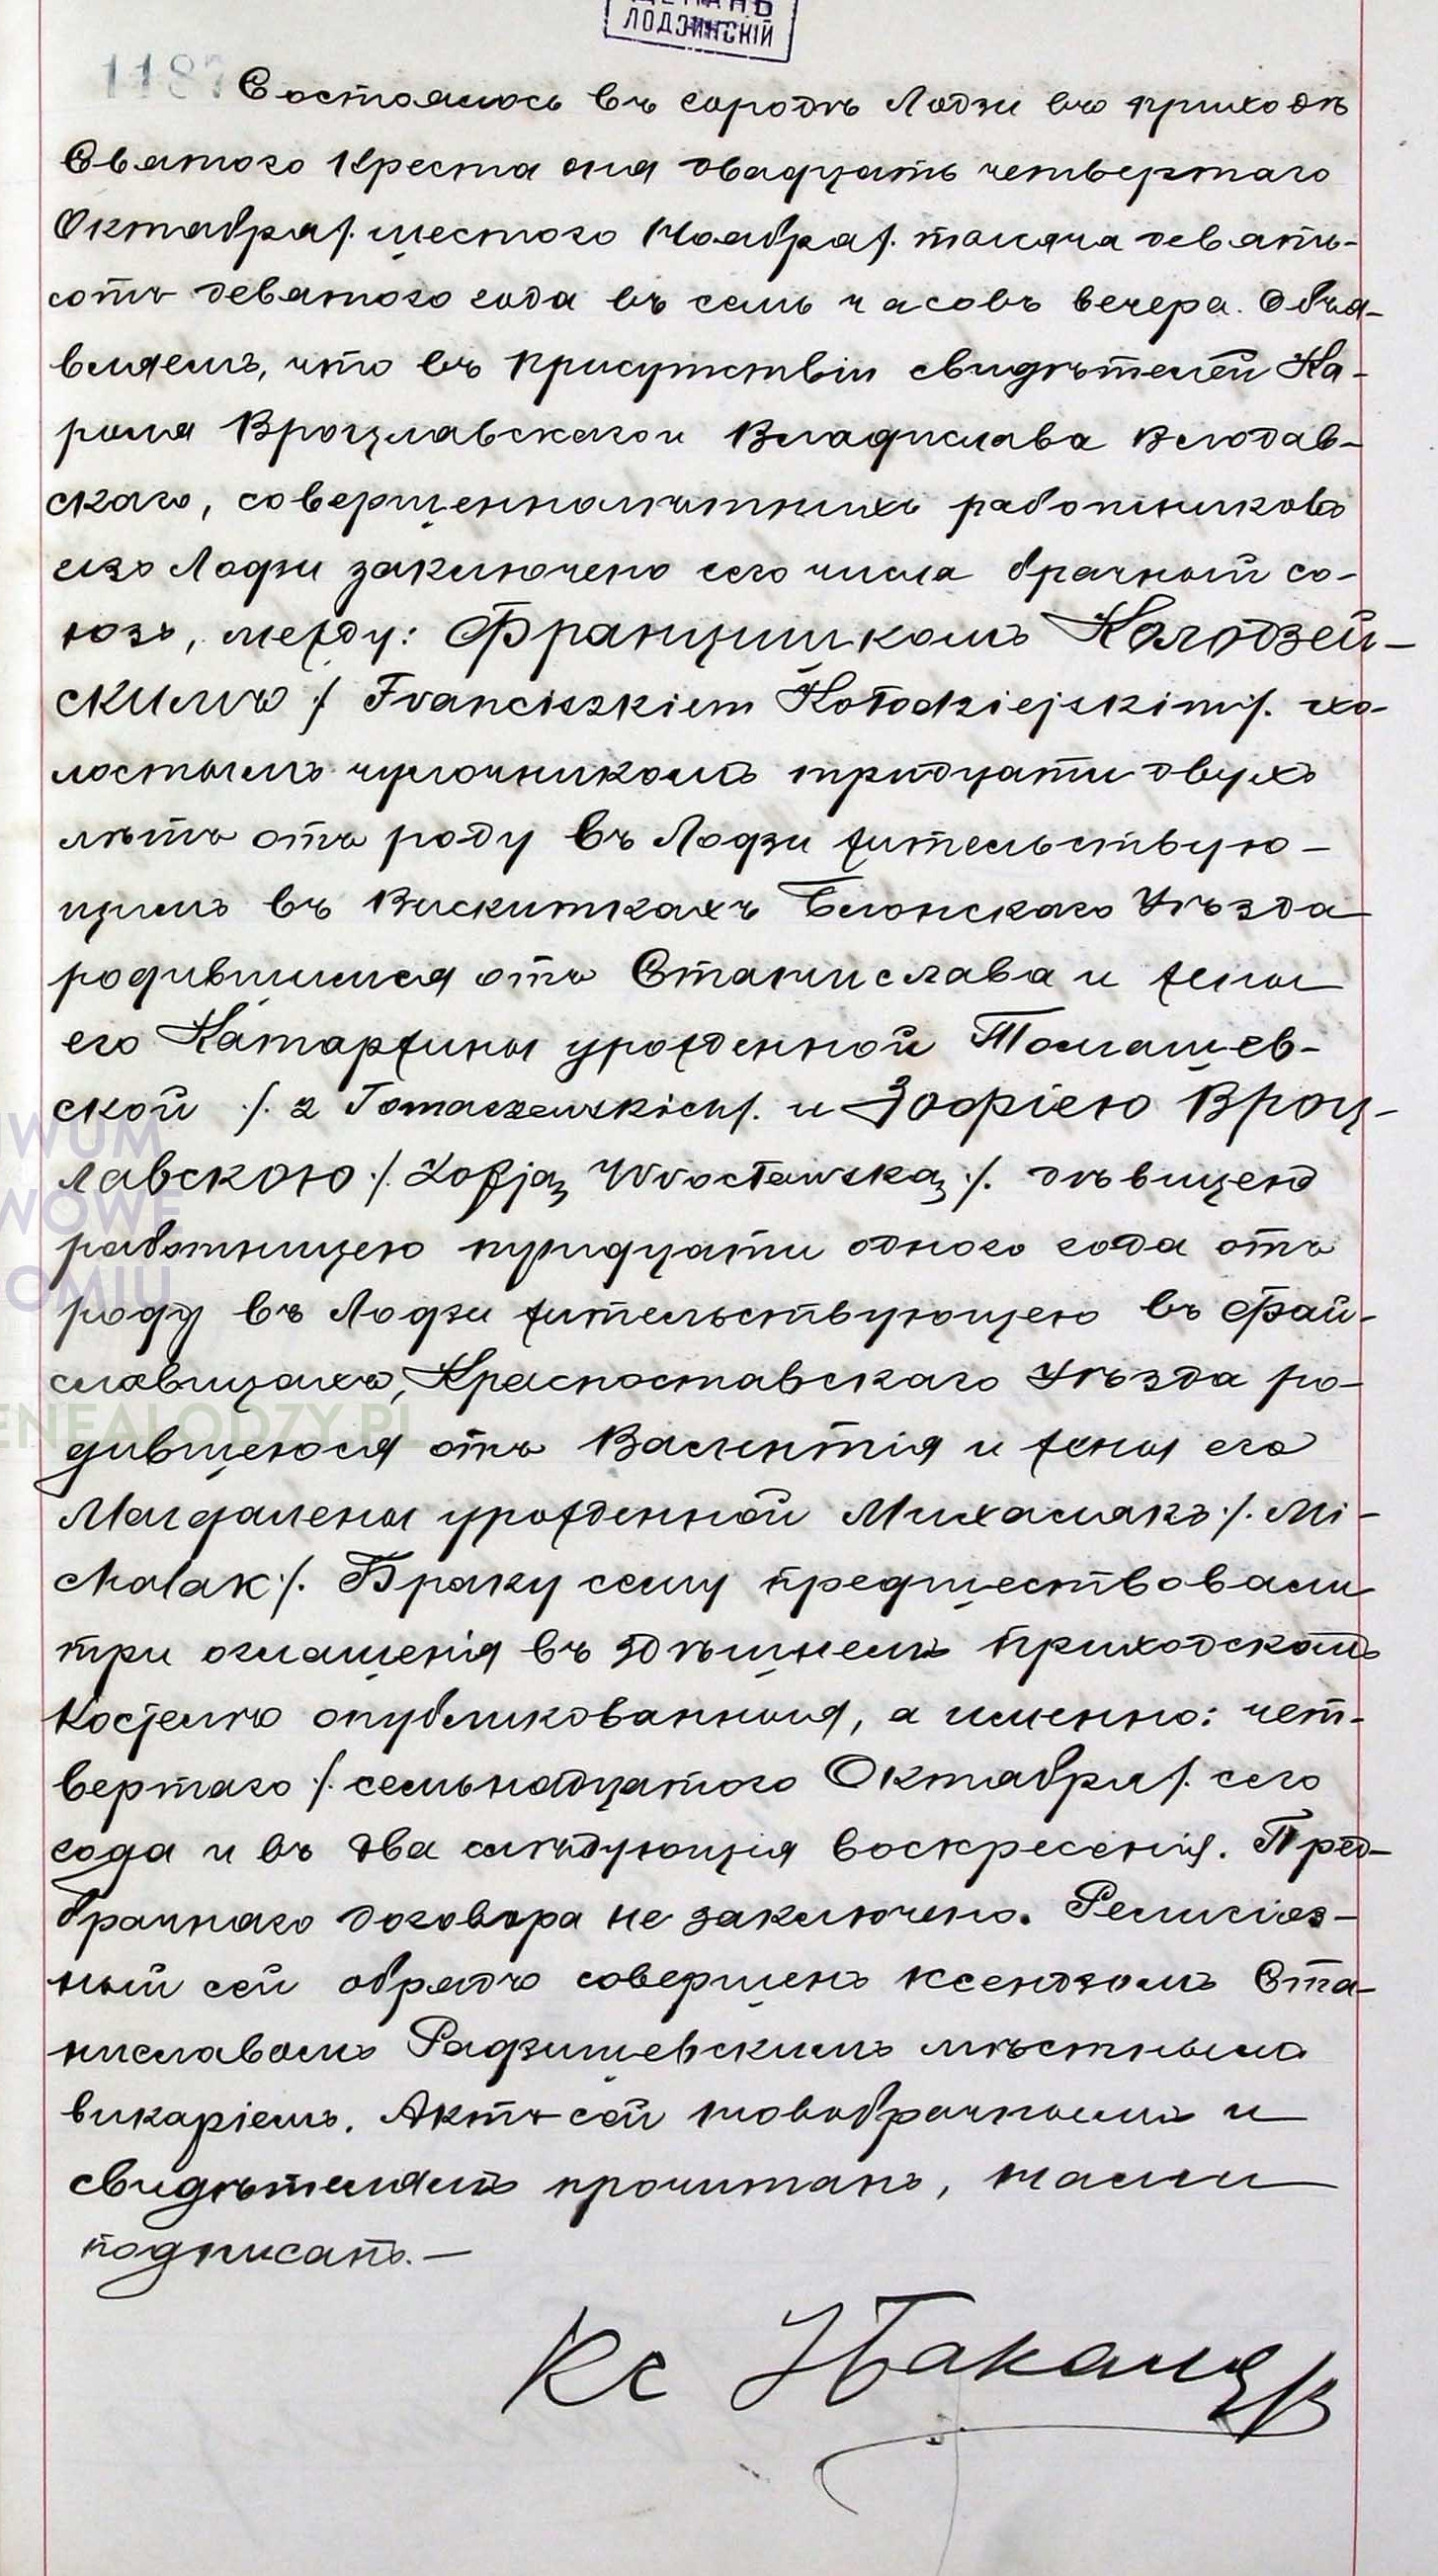 ДЕКАНЪ
ЛОДЗИНСКІЙ
1187 Состоялось въ городѣ Лодзи въ приходѣ
Святого Креста дня двадцать четвертаго
Октября /. шестого Ноября /. тысяча девять-
сотъ девятого года въ семь часовъ вечера. Объя-
вляемъ, что въ присутствіи свидѣтелей Ка-
роля Вроцлавскаго и Владислава Влодав-
скаго, совершеннолѣтнихъ работниковъ
изъ Лодзи заключено сего числа брачный со-
юзъ, между: Францишкомъ Колодзей-
скимъ ./ Franciszkiem Kołodziejskim /. хо-
лостымъ чулочникомъ тридцати двухъ
лѣтъ отъ роду въ Лодзи жительствую-
щимъ въ Вискиткахъ Блонскаго Уѣзда
родившимся отъ Станислава и жены
его Катаржины урожденной Томашев-
ской ./. z Tomaszewskich /. и Зофіею Вроц-
лавскою ./. Zofją Wrocławską ./. дѣвицею
работницею тридцати одного года отъ
роду въ Лодзи жительствующею въ Фай-
славицахъ, Красноставскаго Уѣзда ро-
дившеюся отъ Валентія и жены его
Магдалены урожденной Михалякъ ./. Mi-
chalak /. Браку сему предшествовали
три оглашенія въ здѣшнемъ приходскомъ
костелѣ опубликованныя, а именно: чет-
вертаго ./. семьнадцатого Октября /. сего
года и въ два слѣдующія воскресенія. Пред-
брачнаго договора не заключено. Религіоз-
ный сей обрядъ совершенъ ксендзомъ Ста-
ниславомъ Радзишевскимъ мѣстнымъ
викаріемъ. Актъ сей новобрачнымъ и
свидѣтелямъ прочитанъ, нами
подписанъ. —
Кс
WUM
WOWE
OMIU
ENEALODZY.PL